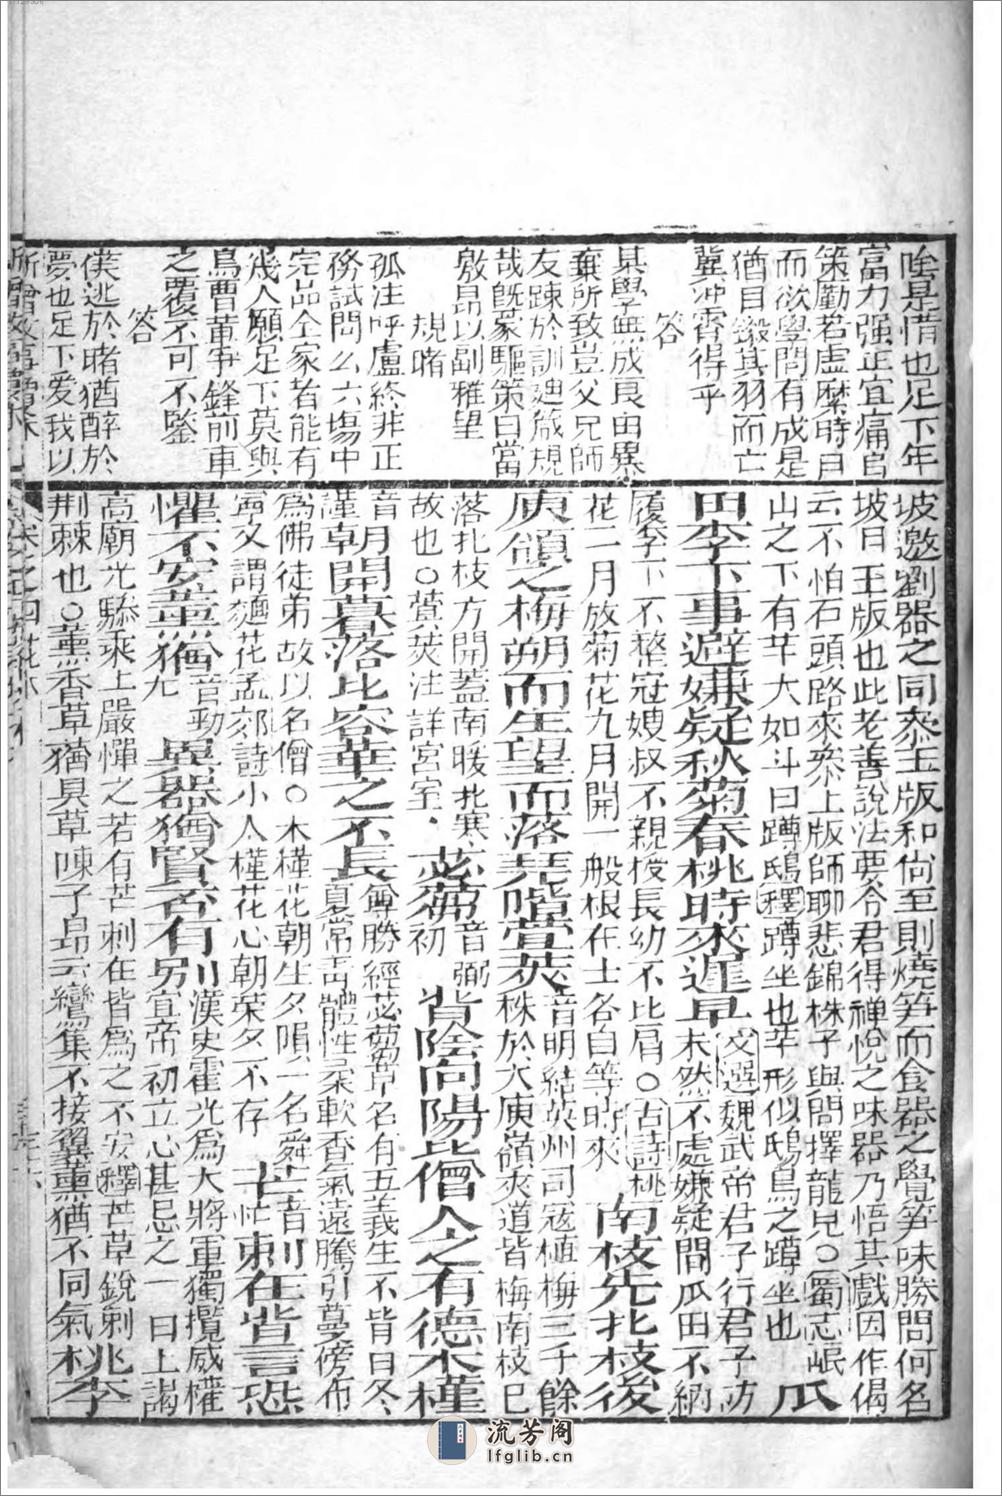 唫是惰也足下年
富力强正宜痛自
策勤若虛縻時日
而欲學問有成是
猶自鎩其羽而亡
冀沖霄得乎
答
某學無成良由暴
棄所致豈父兄師
友踈於訓廸箴規
哉旣蒙驅策自當
慇昂以副雅望
規賭
孤注呼盧終非正
務試問么六塲中
完品全家者能有
幾人願足下莫與
鳥曹董爭鋒前車
之覆不可不鑒
答
僕逃於賭猶醉於
夢也足下爱我以
坡邀劉器之同叅玉版和尙至則燒笋而食器之覺笋味勝問何名
坡曰玉版也此老善說法要令君得禅悅之味器乃悟其戲因作偈
云不怕石頭路來叅玉版師聊悲錦株子與問擇龍兒○蜀志岷
山之下有芋大如斗曰蹲鴟釋蹲坐也芋形似鴟鳥之蹲坐也 瓜
田李下事避嫌疑秋菊春桃時來遲早 文選魏武帝君子行君子防
未然不處嫌疑間瓜田不納
履李下不整冠嫂叔不親授長幼不比肩○古詩桃
花二月放菊花九月開一般根在土各自等時來 南枝先北枝後
庾嶺之梅朔而生望而落堯階蓂莢 音明結英州司寇植梅三千餘
株於大庾嶺夾道皆梅南枝已
落北枝方開蓋南暖北寒
故也○蓂莢注詳宮室 苾蒭 音弼初 背陰向陽比僧人之有德木槿
音謹 朝開暮落比容華之不長 尊勝經苾蒭草名有五義生不皆日冬
夏常靑體性柔軟香氣遠騰引蔓傍布
爲佛徒弟故以名僧○木槿花朝生夕隕一名舜
寗父謂麺花孟郊詩小人槿花心朝榮夕不存 芒 音忙 刺在背言恐
懼不安薰蕕 音勲九 異器猶賢否有别 漢史霍光爲大將軍獨攬威權
宣帝初立心甚忌之一日上謁
高廟光驂乘上嚴憚之若有芒刺在背爲之不安釋芒草銳刺
荆棘也○薰香草蕕臭草陳子昂云鸞集不接翼薰蕕不同氣 桃李
流芳阁
lfglib.cn